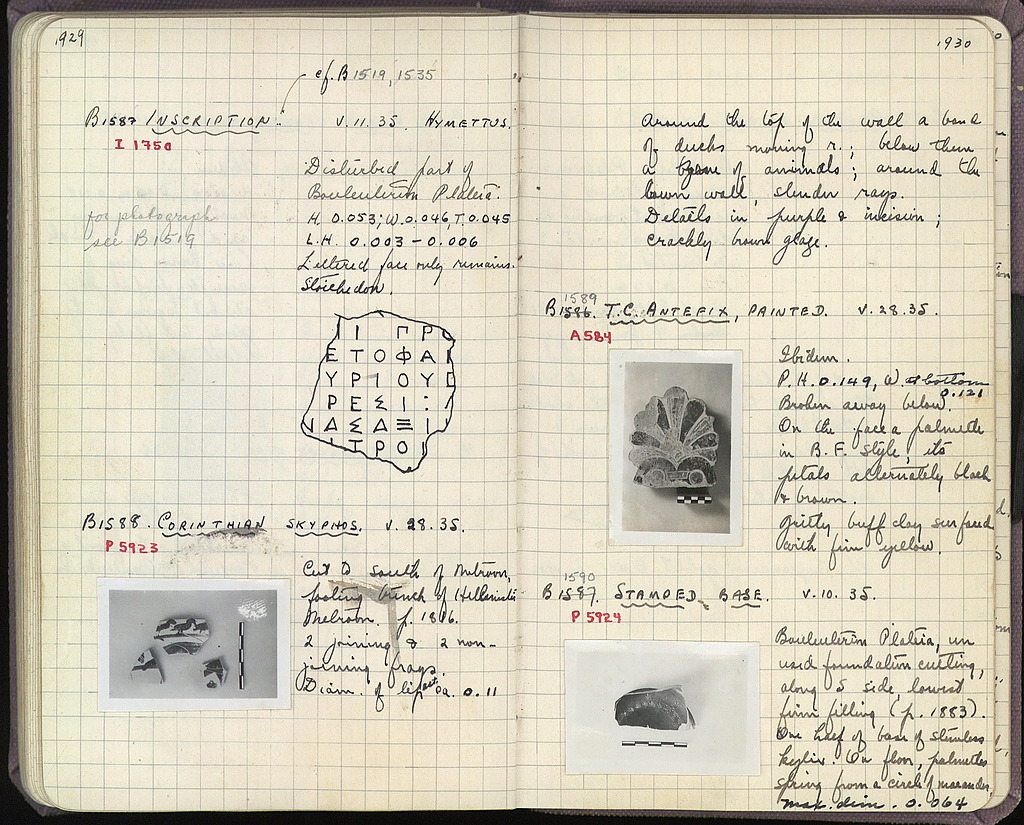 1929
cf. B 1519, 1535
B1587 INSCRIPTION: V.11.35. HYMETTUS.
I 1750
Disturbed part of
Bouleuterion Plateia.
for photograph
see B1519
H. 0.053; W. 0.046, T. 0.045
L.H. 0.003 – 0.006
Lettered face only remains.
Stoichedon.
Ι Γ Ρ Ο
Ε Τ Ο Φ Α Ι
Υ Ρ Ι Ο Υ
Ρ Ε Σ Ι :
Δ Σ Δ Ξ Ι
Τ Ρ Ο Ι
B1588. CORINTHIAN SKYPHOS. V. 28.35.
P 5923
Cut D south of Metroon,
footing trench of Hellenistic
Metroon. p. 1816.
2 joining & 2 non-
joining frags.
Diam. of lip est. ca. 0.11
1930
Around the top of the wall a band
of ducks moving r.; below them
a of animals; around the
lower wall, slender rays.
Details in purple & incision;
crackly brown glaze.
1589
B1586. T.C. ANTEFIX, PAINTED. V.28.35.
A 584
Ibidem.
P.H. 0.149, W. at bottom
0.121
Broken away below.
On the face a palmette
in B.F. style, its
petals alternately black
& brown.
Gritty buff clay surfaced
with firm yellow.
1590
B1587. STAMPED BASE. V.10.35.
P 5924
Bouleuterion Plateia, un
used foundation cutting,
along S side, lowest
firm filling (p. 1883).
One half of base of stemless
kylix. On floor, palmettes
spring from a circle of maeander.
Max. dim. 0.064